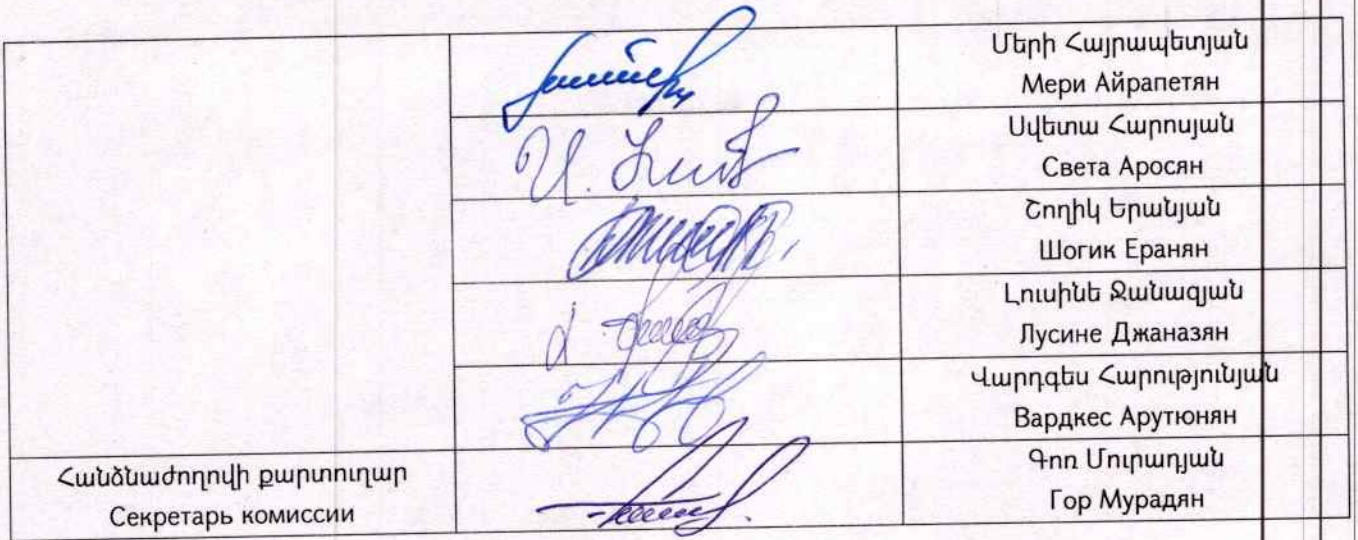 Մերի Հայրապետյան
Мери Айрапетян
Սվետա Հարոսյան
Света Аросян
Շողիկ Երանյան
Шогик Еранян
Լուսինե Ջանազյան
Лусине Джаназян
Վարդգես Հարությունյան
Вардкес Арутюнян
Հանձնաժողովի քարտուղար
Секретарь комиссии
Գոռ Մուրադյան
Гор Мурадян